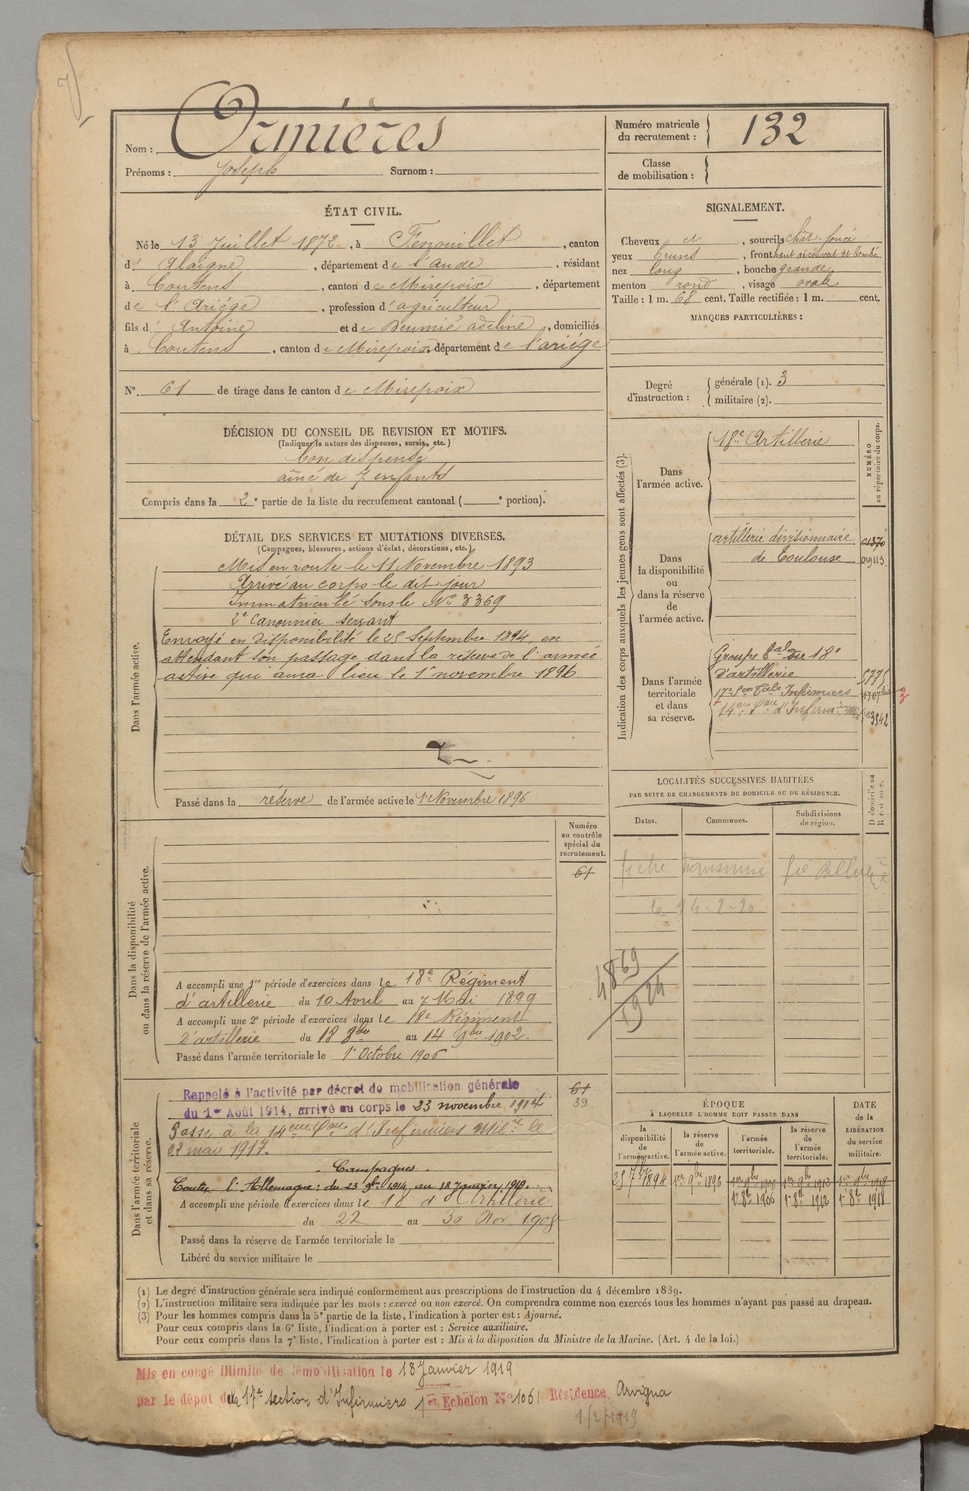 Nom : Ormières
Prénoms : Joseph Surnom :
Numéro matricule du recrutement : 132
Classe de mobilisation :
ÉTAT CIVIL.
Né le 13 Juillet 1872, à Fenouillet, canton
d' Alaigne, département de l'aude, résidant
à Coutens, canton de Mirepoix, département
de l'Ariége, profession d'agriculteur
fils d' Antoine et de Deumié adeline, domiciliés
à Coutens, canton de Mirepoix, département de l'ariége
N° 61 de tirage dans le canton de Mirepoix
DÉCISION DU CONSEIL DE REVISION ET MOTIFS.
(Indiquer la nature des dispenses, sursis, etc.)
bon dispensé
aîné de 7 enfants
Compris dans la 2e partie de la liste du recrutement cantonal ( e portion).
DÉTAIL DES SERVICES ET MUTATIONS DIVERSES.
(Campagnes, blessures, actions d'éclat, décorations, etc.)
Dans l'armée active.
Mis en route le 11 Novembre 1893
Arrivé au corps le dit jour
Immatriculé sous le N° 3369
2e Canonnier servant
Envoyé en disponibilité le 25 Septembre 1894, en
attendant son passage dans la réserve de l'armée
active qui aura lieu le 1er novembre 1896
Passé dans la réserve de l'armée active le 1er Novembre 1896
Dans la disponibilité
ou dans la réserve de l'armée active.
Numéro
au contrôle
spécial du
recrutement.
61
A accompli une 1re période d'exercices dans le 18e Régiment
d'artillerie du 10 Avril au 7 Mai 1899
A accompli une 2e période d'exercices dans le 18e Régiment
d'artillerie du 18 8bre au 14 9bre 1902
Passé dans l'armée territoriale le 1er Octobre 1906
Dans l'armée territoriale
et dans sa réserve.
61
39
Rappelé à l'activité par décret de mobilisation générale
du 1er Août 1914, arrivé au corps le 23 novembre 1914
Passé à la 14eme Son d'Infirmiers Milres le
22 mai 1917.
Campagnes
Contre l'Allemagne : du 23 9bre 1914 au 18 Janvier 1919
A accompli une période d'exercices dans le 18 d'Artillerie
du 22 au 30 Nov 1908
Passé dans la réserve de l'armée territoriale le
Libéré du service militaire le
SIGNALEMENT.
Cheveux et, sourcils chat. foncé
yeux bruns, front haut découvert et bombé
nez long, bouche grande
menton rond, visage ovale
Taille : 1 m. 68 cent. Taille rectifiée : 1 m. cent.
MARQUES PARTICULIÈRES :
Degré d'instruction : générale (1). 3
militaire (2).
Indication des corps auxquels les jeunes gens sont affectés (3).
NUMÉRO
au répertoire du corps.
Dans
l'armée active.
18e Artillerie
Dans
la disponibilité
ou
dans la réserve
de
l'armée active.
artillerie divisionnaire
de Toulouse
Dans l'armée
territoriale
et dans
sa réserve.
Groupe Tal du 18e
d'artillerie
17e Son Tale Infirmiers
14e Son d'Infirmiers
LOCALITÉS SUCCESSIVES HABITÉES
PAR SUITE DE CHANGEMENTS DE DOMICILE OU DE RÉSIDENCE.
Dates. Communes. Subdivisions de région.
fiche transmise
le 24-2-20
4869
1924
ÉPOQUE
À LAQUELLE L'HOMME DOIT PASSER DANS
DATE
de la
LIBÉRATION
du service
militaire.
la disponibilité de l'armée active. la réserve de l'armée active. l'armée territoriale. la réserve de l'armée territoriale.
25 7bre 1894 1er 9bre 1896 1er 9bre 1918
1er 8bre 1906 1er 8bre 1912 1er 8bre 1918
(1) Le degré d'instruction générale sera indiqué conformément aux prescriptions de l'instruction du 4 décembre 1889.
(2) L'instruction militaire sera indiquée par les mots : exercé ou non exercé. On comprendra comme non exercés tous les hommes n'ayant pas passé au drapeau.
(3) Pour les hommes compris dans la 5e partie de la liste, l'indication à porter est : Ajourné.
Pour ceux compris dans la 6e liste, l'indication à porter est : Service auxiliaire.
Pour ceux compris dans la 7e liste, l'indication à porter est : Mis à la disposition du Ministre de la Marine. (Art. 4 de la loi.)
Mis en congé illimité de démobilisation le 18 Janvier 1919
par le dépôt de la 17e section d'Infirmiers 1er Echelon N° 1061 Résidence Arvigna
1/2/1919